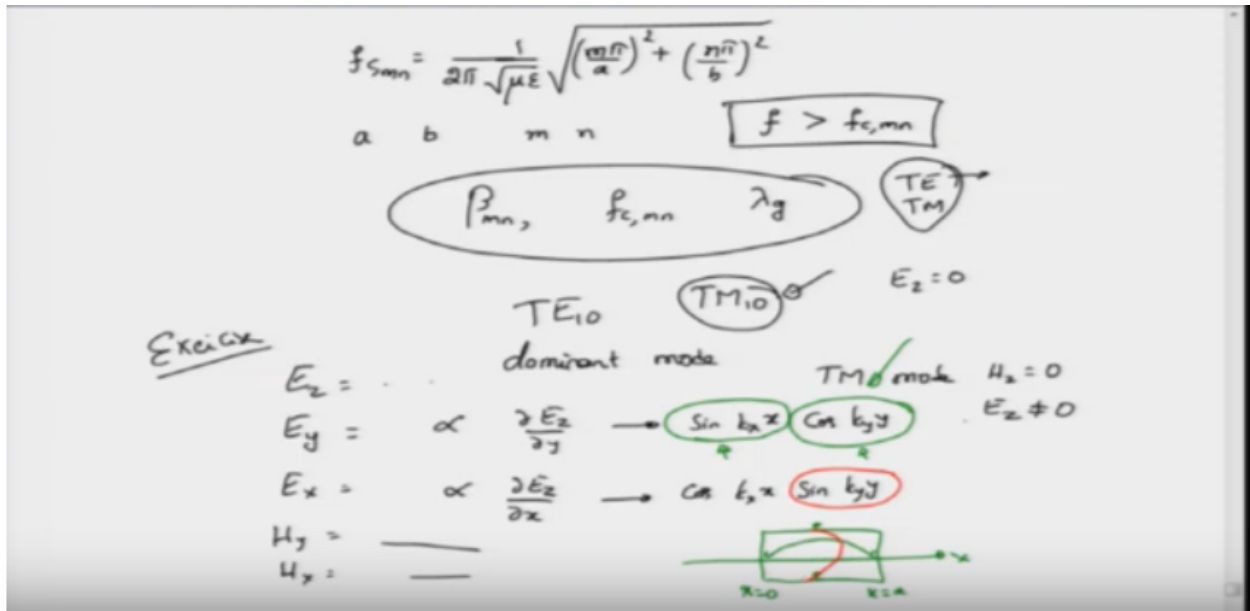 f_{c,mn} = 1/(2π√με) √((mπ/a)² + (nπ/b)²)
a b m n f > f_{c,mn}
β_{mn}, f_{c,mn} λ_g TE TM
TE₁₀ TM₁₀ E_z = 0
Exercise dominant mode
E_z = . . TM mode H_z = 0
E_y = ∝ ∂E_z/∂y → Sin k_x x Cos k_y y E_z ≠ 0
E_x = ∝ ∂E_z/∂x → Cos k_x x Sin k_y y
H_y = ___
H_x = ___ x
x=0 x=a